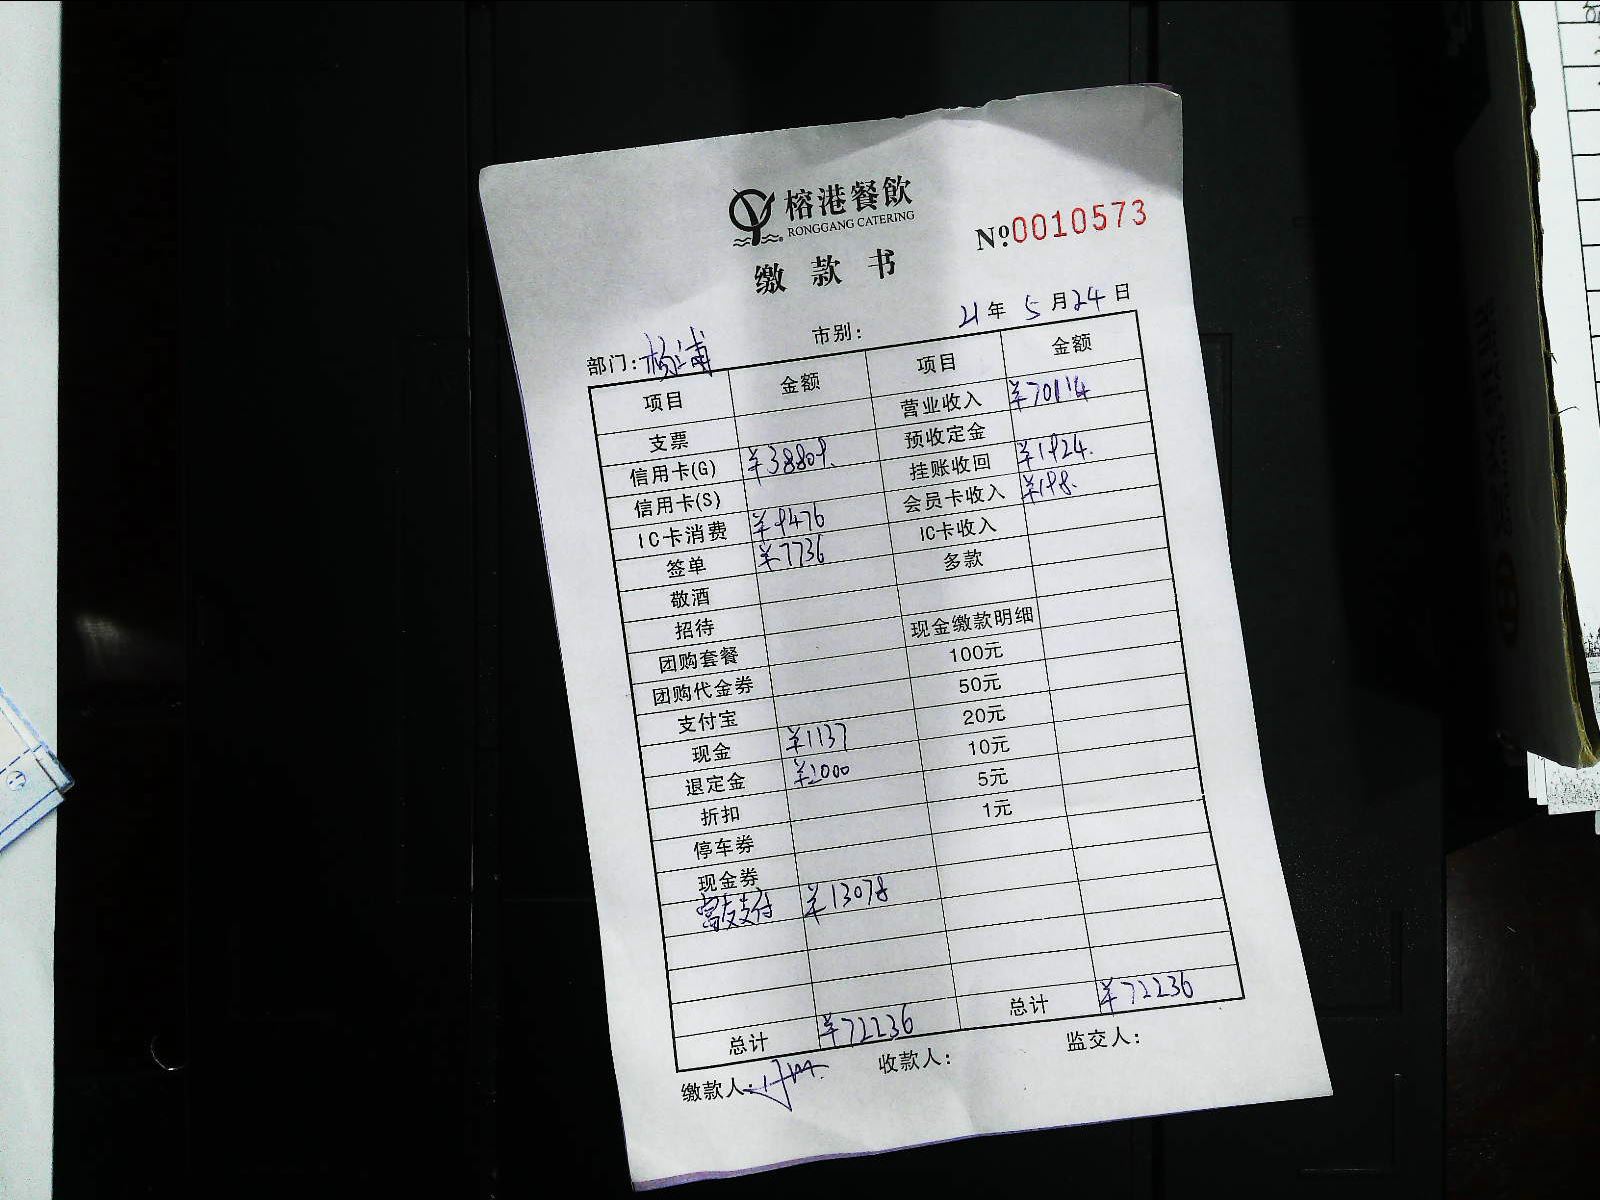 榕港餐飲
RONGGANG CATERING
缴款书
Nº0010573
部门:杨浦 市别: 21年5月24日
项目 金额 项目 金额
支票 营业收入 ¥70114
信用卡(G) ¥38809. 预收定金
信用卡(S) 挂账收回 ¥1924.
IC卡消费 ¥9476 会员卡收入 ¥198.
签单 ¥7736 IC卡收入
敬酒 多款
招待
团购套餐 现金缴款明细
团购代金券 100元
支付宝 50元
现金 ¥1137 20元
退定金 ¥2000 10元
折扣 5元
停车券 1元
现金券
富友支付 ¥13078
总计 ¥72236 总计 ¥72236
缴款人: 收款人: 监交人: